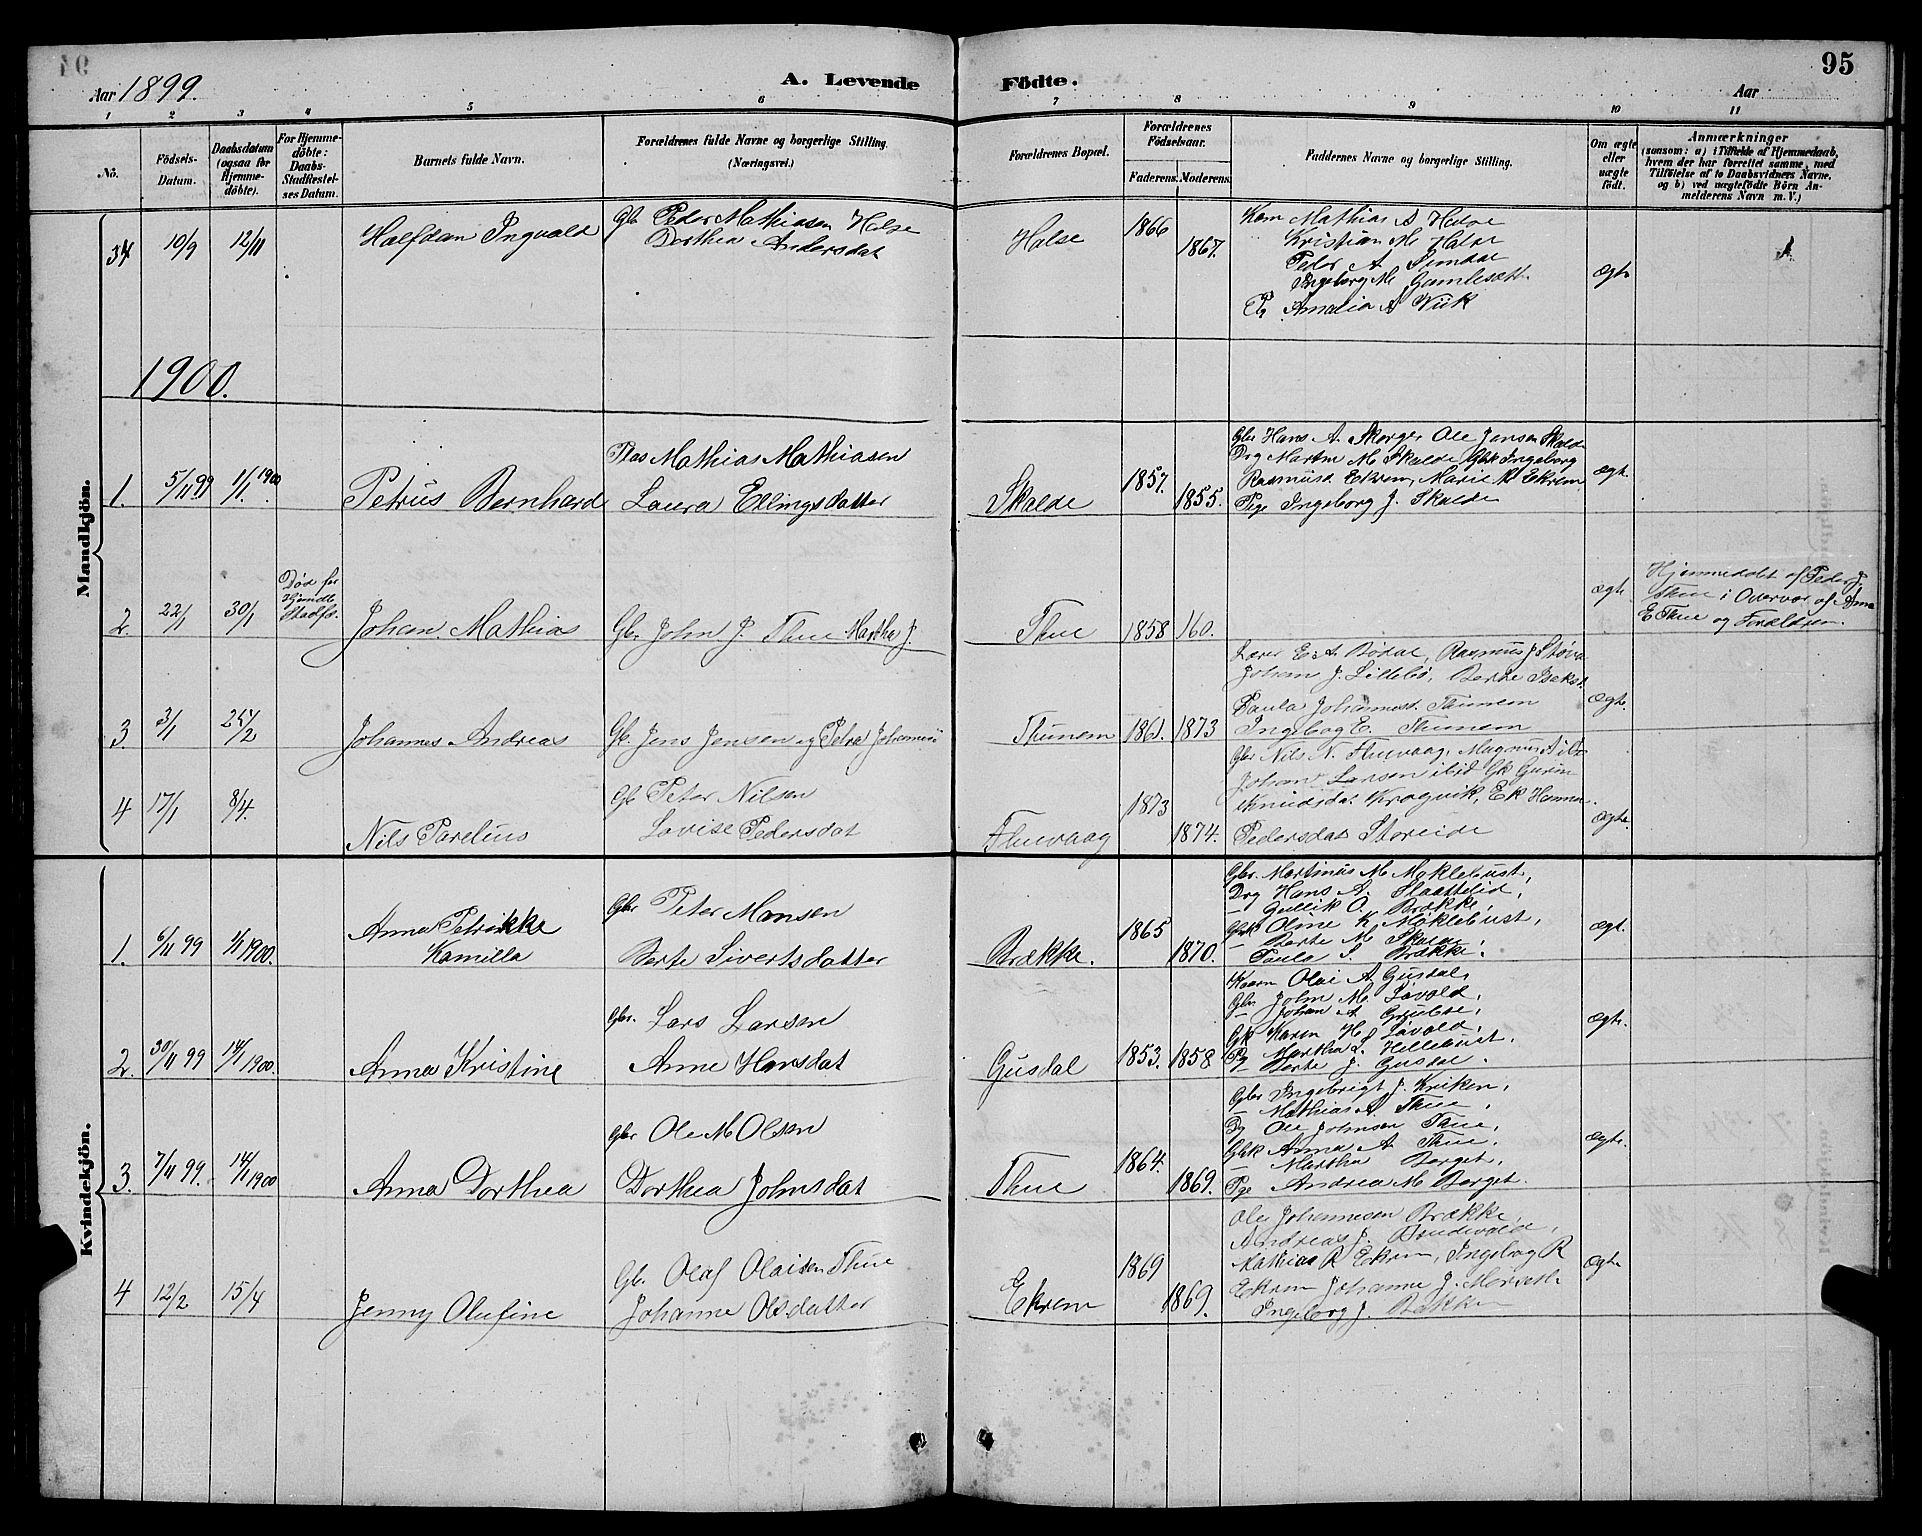 Aar 1899.
A. Levende
Födte.
Aar
95
1 2 3 4 5 6 7 8 9 10 11
No.
Födsels-Datum.
Daabsdatum (ogsaa for Hjemmedöbte).
For Hjemmedöbte: Daabs-Stadfæstelses Datum.
Barnets fulde Navn.
Forældrenes fulde Navne og borgerlige Stilling. (Næringsvei.)
Forældrenes Bopæl.
Forældrenes Födselsaar.
Faderens. Moderens.
Faddernes Navne og borgerlige Stilling.
Om ægte eller uægte födt.
Anmærkninger
(saasom: a) i Tilfælde af Hjemmedaab, hvem der har forrettet samme, med Tilföielse af to Daabsvidners Navne, og b) ved uægtefödte Börn Anmelderens Navn m. V.)
Mandkjön.
34 10/9 12/11 Halfdan Ingvald
Gb. Peder Mathiasen Halse
Dorthea Andersdat
Halse 1866 1867.
Mathias A Halse
Kristian M. Halse
Peder A
Ingeborg M.
Pg Amalia A Viik
ægte
1900.
1. 5/11 99 1/1 1900. Petrus Bernhard
Plas Mathias Mathiasen
Laura Ellingsdatter
Skalde 1857. 1855.
Gbr Hans A. Skorge, Ole Jensen Skalde
Drg Martin M. Skalde, Gbk Ingeborg
Rasmusd Ekrem, Marie M Ekrem
Pige Ingeborg J. Skalde
ægt.
2. 22/1 30/1 Død før Hjemdb Stadfs.
Johan Mathias
Gbr John J. Thue Martha J.
Thue 1858 160.
ægte
Hjemmedøbt af Peder J.
Thue i Overvær af Anna
E. Thue og Forældren.
3. 3/1 25/2 Johannes Andreas
Gb. Jens Jensen og Petra
Thunem 1861. 1873
Lærer E. A. Bødal, Rasmus J Støva
Johan J. Lillebö, Berte
Paula Johannesd. Thunem
Ingebog E. Thunem
ægte.
4 17/1 8/4. Nils Parelius
Gb Peter Nilsen
Lovise Pedersdat
Fluevaag 1873 1874.
Gbr Nils N. Fluevaag, Magnus A ib
Johan Larsen ibid Gk Gurine
Knudsdat Kragvik, Ek Hanna
Pedersdat Storeide
ægte.
Kvindekjön.
1. 6/11 99 1/1 1900. Anna Petrikke
Kamilla
Gbr Peter Monsen
Berte Sivertsdatter
Brække. 1865 1870.
Gbr. Martinus M. Møklebust,
Drg Hans A. Slaattelid,
- Gullik O. Brække,
Gbk Oline K Møklebust,
- Berte M. Skalde,
- Paula S. Brække.
ægt.
2. 30/11 99 14/1 1900. Anna Kristine
Gbr. Lars Larsen
Anne Hansdat
Gusdal 1853. 1858
Kaarm Olai A. Gusdal,
Gbr John M. Løvold,
- Johan A
Gk Karen H. Løvold,
Pg Martha L. Hellebust,
Pg Berte J. Gusdal.
ægte.
3. 7/11 99. 14/1 1900 Anna Dorthea
Gbr Ole M Olsen
Dorthea Johnsdat
Thue 1864. 1869.
Gbr Ingebrigt J. Kriken,
- Mathias A. Thue,
Dg Ole Johnsen Thue,
Gbk Anna A. Thue.
- Martha Berget,
Pge Andrea M. Berget.
ægte.
4 12/2 15/4 Jenny Olufine
Gb. Olaf Olaisen Thue
Johanne Olsdatter
Ekrem 1869 1869.
Ole Johannesen Brække,
Andreas J.
Mathias R. Ekrem, Ingeborg R
Ekrem Johanne J.
Ingeborg J. Brække
ægte